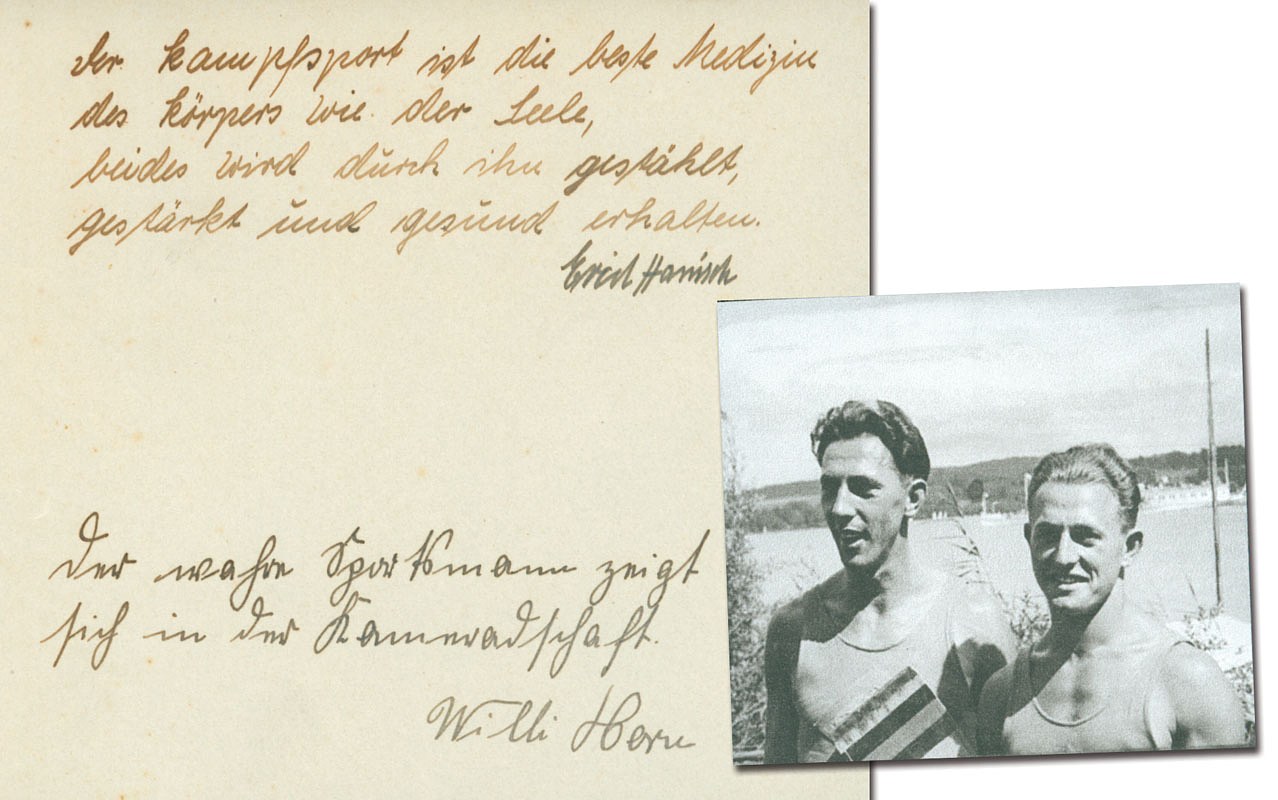 Der Kampfsport ist die beste Medizin
des Körpers wie der Seele,
beides wird durch ihn gestählt,
gestärkt und gesund erhalten.
Erich Hanisch
Der wahre Sportsmann zeigt
sich in der Kameradschaft.
Willi Horn